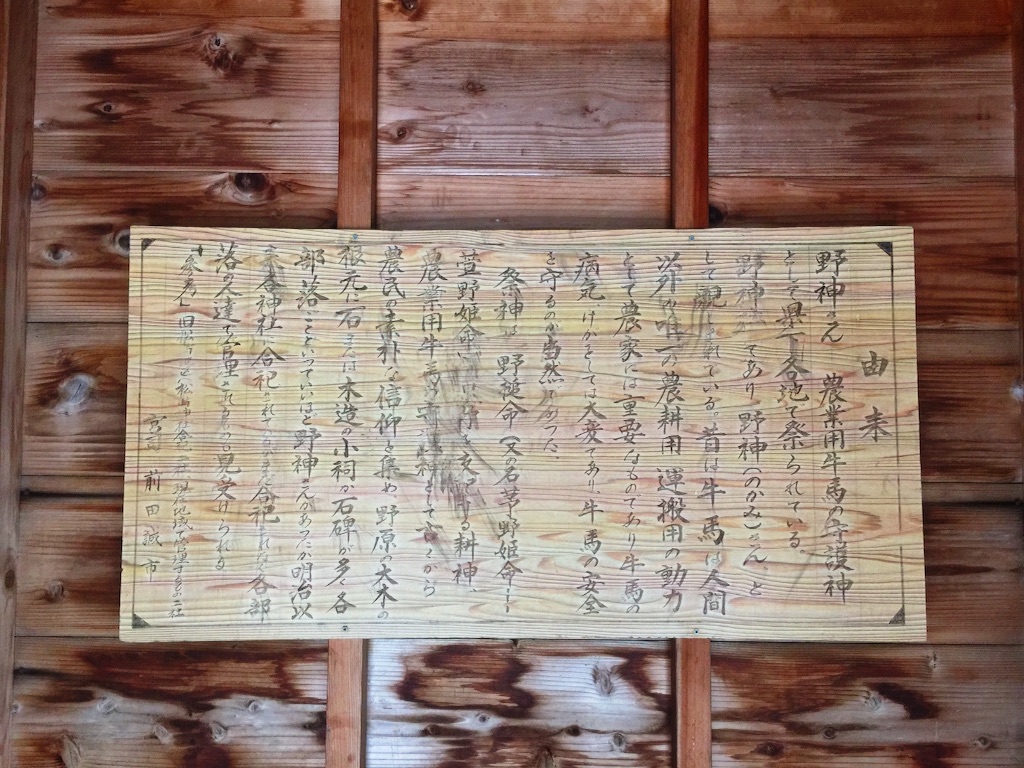 由来
野神さん 農業用牛馬の守護神
として県下各地で祭られている
野神 であり 野神(のかみ)さん と
して親しまれている。昔は牛馬は人間
以外で唯一の農耕用 運搬用の動力
として農家には重要なものであり牛馬の
病気 けがとしては大変であり、牛馬の安全
を守るのが当然であった、
祭神は 野槌命(又の名草野姫命
萱野姫命 する耕神、
農業用牛馬の守護神として古くから
農民の素朴な信仰を集め 野原の大木の
根元に石 または木造の小祠か石碑が多く各
部落ごとといっていいほど野神さんがあったが明治以
来各神社に合祀されて 合祀 各部
落の人達で管理されるもの見受けられる
田松
宮司 前田誠市